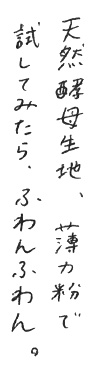 天然酵母生地、薄力粉で
試してみたら、ふわんふわん。